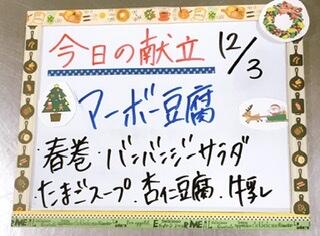 今日の献立 12/3
マーボー豆腐
・春巻・バンバンジーサラダ
・たまごスープ・杏仁豆腐・牛乳